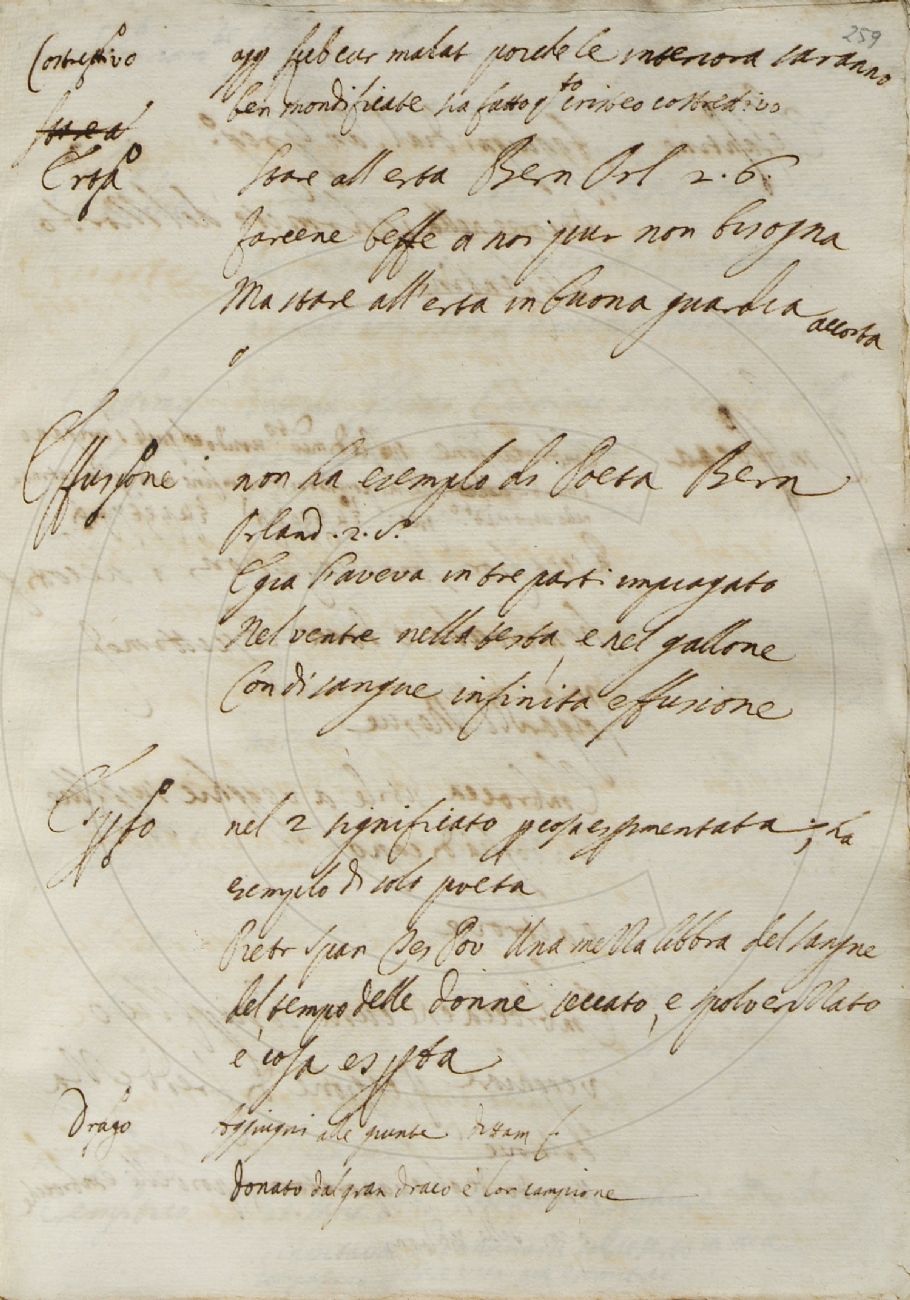 259
Costrettivo agg fubcur malat poichè le interiora saranno
ben mondificate sia fatto q.to cristeo costrettivo
Erta Stare all erta Bern Orl 2. 6.
farcene beffe a noi pur non bisogna
Ma stare all' erta in buona guardia accorta
Effusione non ha esemplo di Poeta Bern
Orland. 2. 5.
E gia l'aveva in tre parti impiagato
Nel ventre nella testa, e nel gallone
Con di sangue infinita effusione
nel 2 significato p cosa esprimentata, ha
esemplo di solo poeta
Pietr Span Tes Pov Una mezza libbra del sangue
del tempo delle donne seccato, e spolverizzato
è cosa espta
Drago Aggiugni alle giunte Dittam
Donato dal gran draco è lor campione